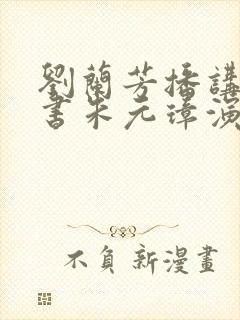 劉蘭芳播講
書朱元璋演
不負新漫畫